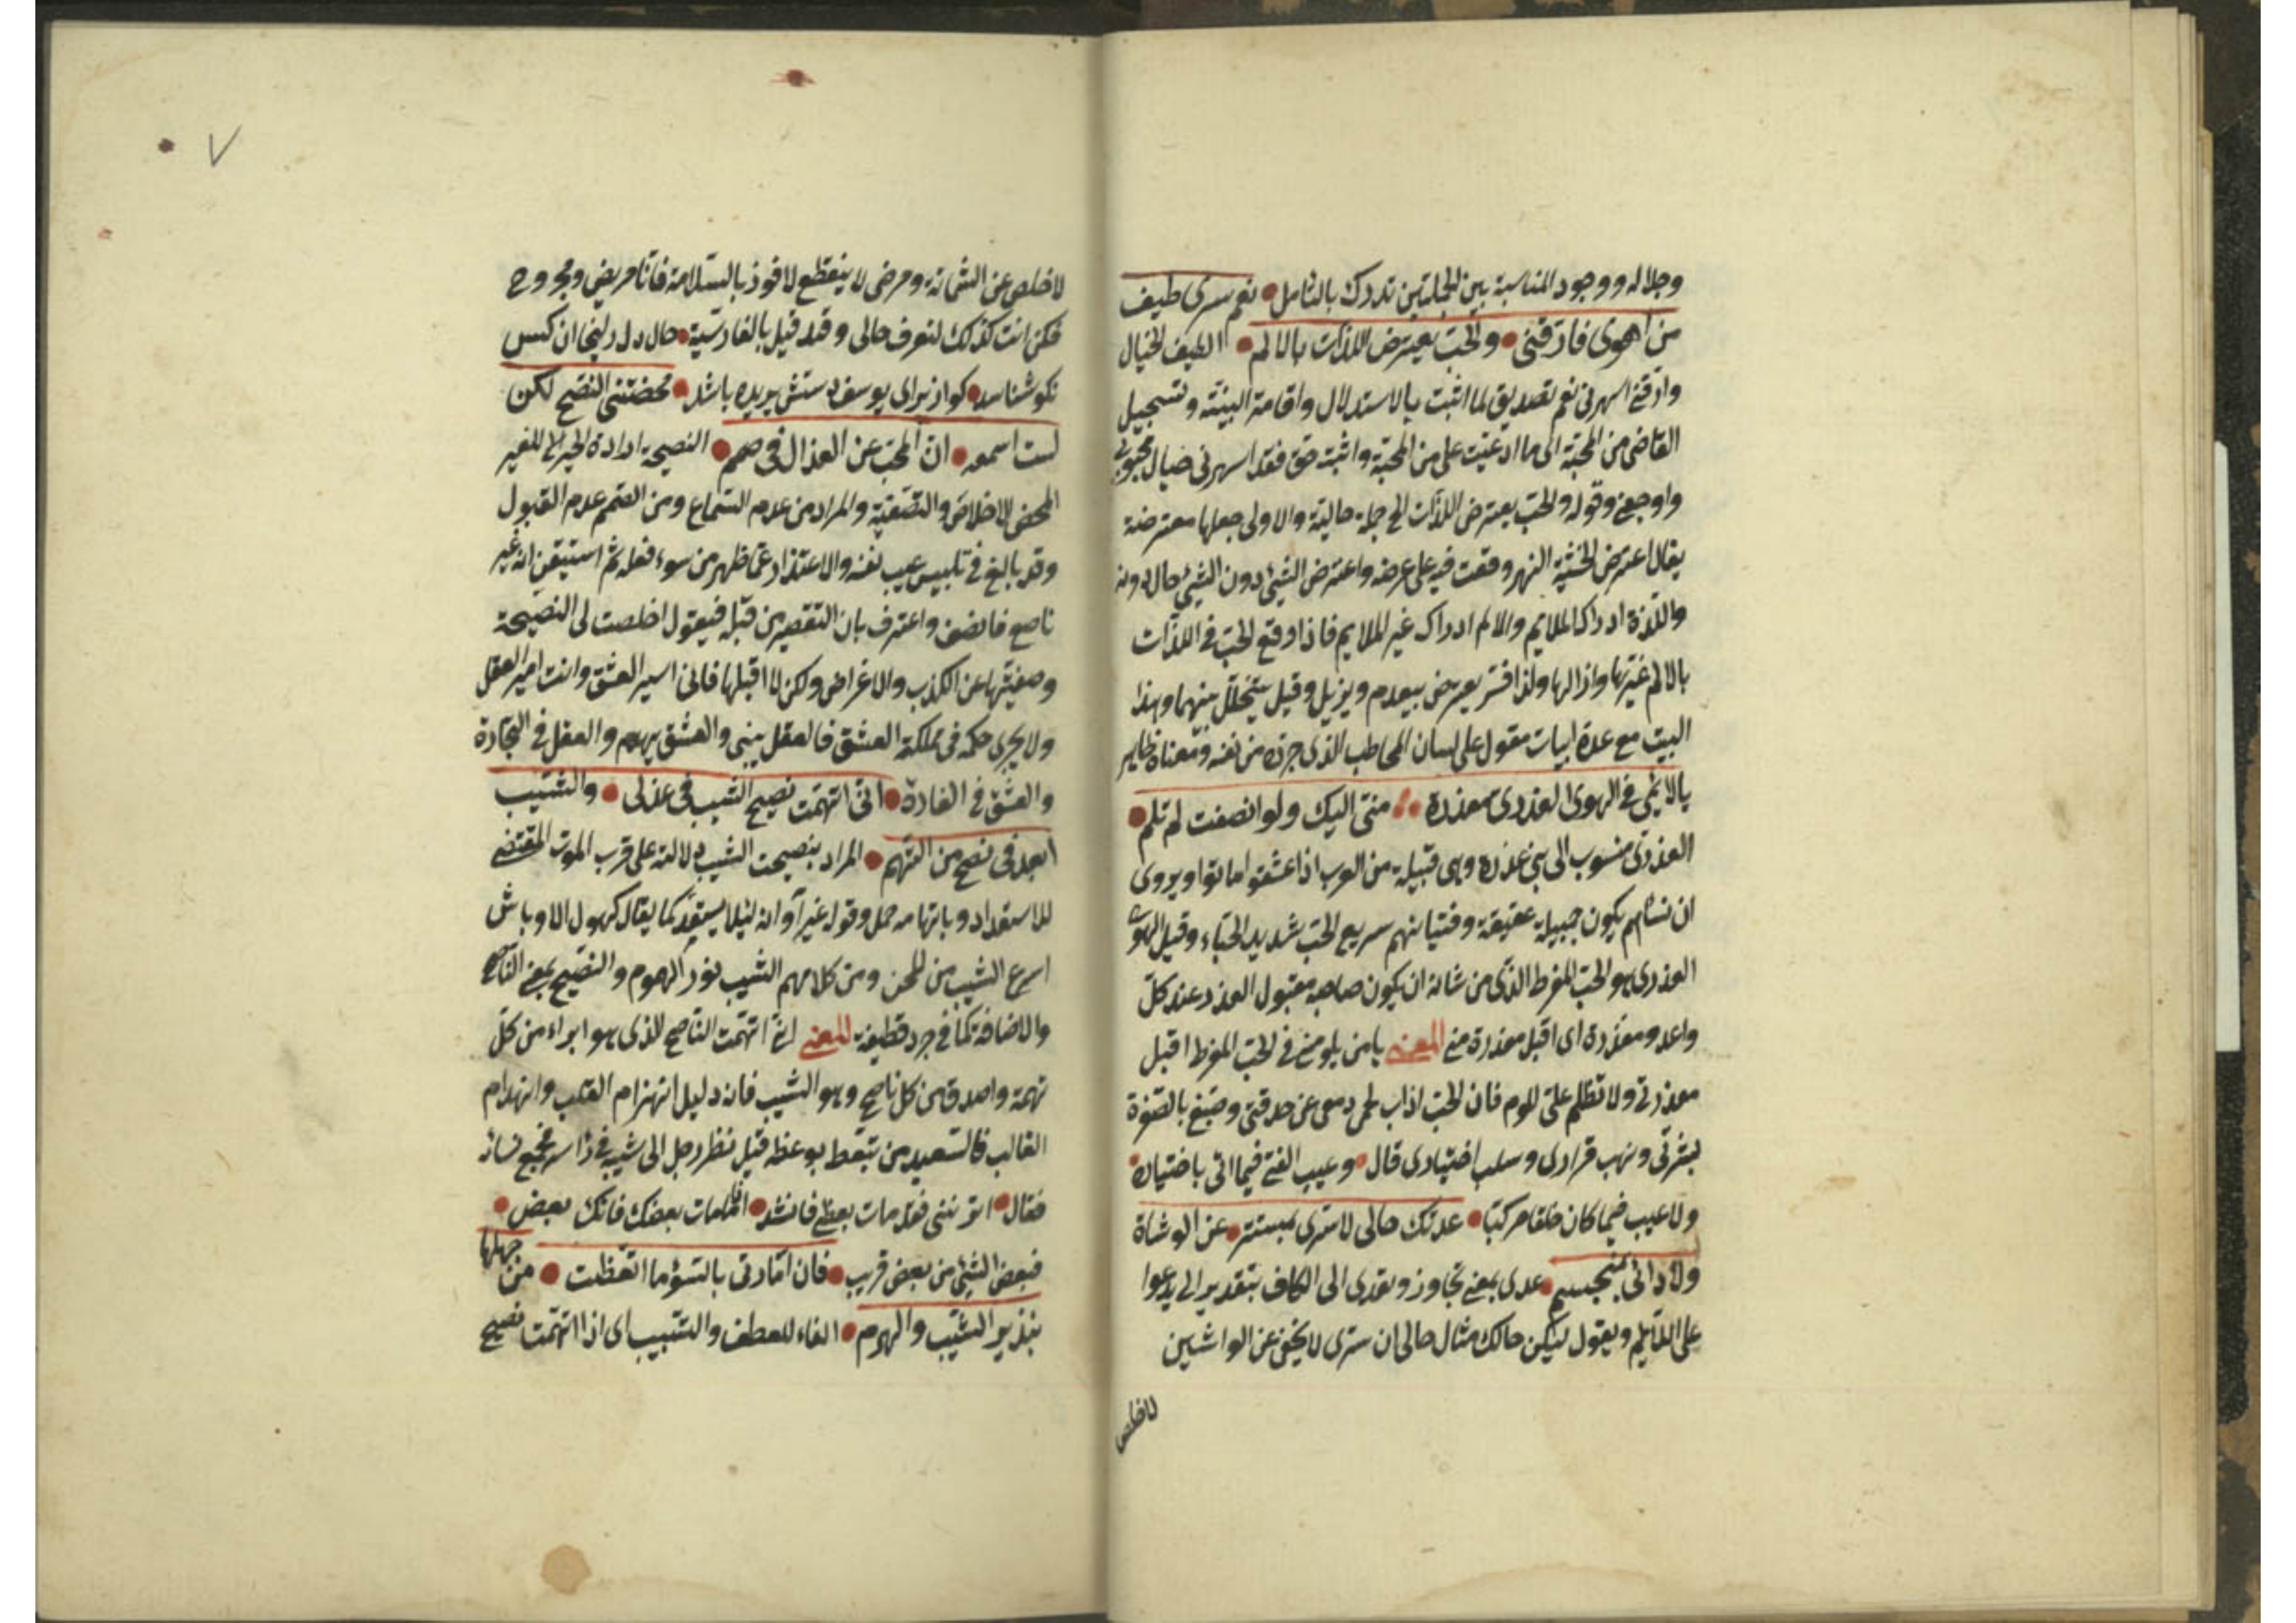 وجلاله ووجود المناسبة بين الجملتين تدرك بالتأمل • نعم سرى طيف
من اهوى فارقنى • والحب يعترض اللذات بالالم • الطيف الخيال
وارقنى اسهرنى نعم تصديق لما اثبت بالاستدلال واقامة البينة وتسجيل
القاضى من المحبة الى ما ادعيت على من المحبة واثبت حق فقد اسهرنى خيال محبوبى
واوجعنى وقوله والحب يعترض اللذات الخ جملة حالية والاولى جعلها معترضة
يقال اعترض الخشبة النهر وقعت فيه على عرضه واعترض الشيئ دون الشيئ حال دونه
واللذة ادراك الملايم والالم ادراك غير الملايم فاذا وقع الحب فى اللذات
بالالم غيرها وازالها ولذا فسر يعترض بيعدم ويزيل وقيل يتخلل بينهما وهذا
البيت مع عدة ابيات مقول على لسان المخاطب الذى جرده من نفسه ومعناه ظاهر
يا لائمى فى الهوى العذرى معذرة • منى اليك ولو انصفت لم تلم •
العذرى منسوب الى بنى عذره وهى قبيلة من العرب اذا عشقوا ماتوا ويروى
ان نسائهم يكون جميلة عفيفة وفتيانهم سريع الحب شديد الحياء وقيل الهوى
العذرى هو الحب المفرط الذى من شانه ان يكون صاحبه مقبول العذر عند كل
واحد ومعذرة اى اقبل معذرة منى المعنى يا من يلومنى فى الحب المفرط اقبل
معذرتى ولا تظلم على اللوم فان الحب اذاب لحمى دمعى عن حدقتى وصبغ بالصفرة
بشرتى ونهب قرارى وسلب اختيارى قال • وعيب الفتى فيما اتى باختياره •
ولا عيب فيما كان خلقا مركبا • عدتك حالى لا سرى بمستتر • عن الوشاة
ولا دائى بمنحسم • عدى بمعنى تجاوز وتعدى الى الكاف بتقدير الى يدعوا
على اللايم ويقول ليكن حالك مثال حالى ان سرى لا يخفى عن الواشين
لاخلص
لاخلص عن الشماتة ومرض لا ينقطع لا فوز بالسلامة فانا مريض ومجروح
فكن انت كذلك لتعرف حالى وقد قيل بالفارسية • حال دل زليخا ان كس
نكو شناسد • كو از براى يوسف دستش بريده باشد • محضتنى النصح لكن
لست اسمعه • ان المحب عن العذال فى صمم • النصيحة ارادة الخير للغير
المحض الاخلاص والتصفية والمراد من عدم السماع ومن الصمم عدم القبول
وقد بالغ فى تلبيس عيب نفسه والاعتذار عما ظهر من سوء فعله ثم استيقن انه غير
ناصح فانصف واعترف بان التقصير من قبله فيقول اخلصت لى النصيحة
وصفيتها عن الكذب والاغراض ولكن لا اقبلها فانى اسير العشق وانت امير العقل
ولا يجرى حكمه فى مملكة العشق فالعقل يبنى والعشق يهدم والعقل فى التجارة
والعشق فى الغارة • انى اتهمت نصيح الشيب فى عذلى • والشيب
ابعد فى نصح من التهم • المراد بنصيحت الشيب دلالته على قرب الموت المقتضى
للاستعداد وقوله غير آوانه لئلا يستبعد كما يقال كهول الاوباش
اسرع الشيب من المحن ومن كلامهم الشيب نور الهموم والنصيح بمعنى الناصح
والاضافة كما فى جرد قطيفة المعنى انى اتهمت الناصح الذى هو ابراء من كل
تهمة واصدق من كل ناصح وهو الشيب فانه دليل انهزام القلب وانهدام
القالب فالسعيد من تيقظ بوعظه قيل نظر رجل الى شيبه فى راسه فجمع نسائه
فقال • اندبننى فقد مات بعضى فانشد • اذا مات بعضك فابك بعض •
فبعض الشيئ من بعض قريب • فان امارتى بالسوء ما اتعظت • من جهلها
بنذير الشيب والهرم • الفاء للعطف والسبب اى اذا اتهمت نصيح
٧